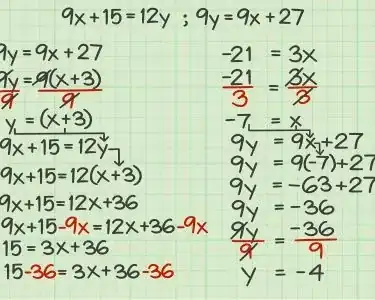 9x+15=12y ; 9y=9x+27
9y = 9x+27
9y = 9(x+3)
9 9
y = (x+3)
9x+15=12y
9x+15=12(x+3)
9x+15=12x+36
9x+15-9x=12x+36-9x
15=3x+36
15-36=3x+36-36
-21 = 3x
-21 = 3x
3 3
-7 = x
9y = 9x+27
9y = 9(-7)+27
9y = -63+27
9y = -36
9y = -36
9 9
y = -4